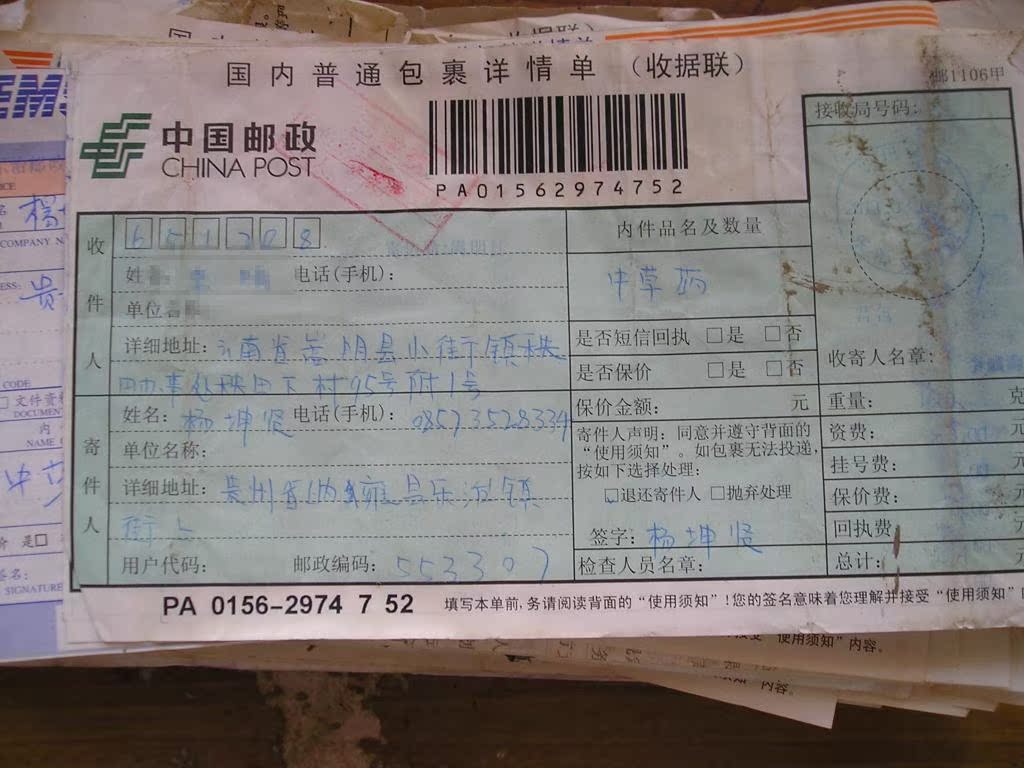 国内普通包裹详情单 (收据联)
邮1106甲
中国邮政
CHINA POST
PA01562974752
接收局号码:
收件人
内件品名及数量
姓 电话(手机):
中草药
单位
详细地址: 云南省嵩明县小街镇
村95号附1号
是否短信回执 □是 □否
是否保价 □是 □否
收寄人名章:
寄件人
姓名: 杨坤贤 电话(手机): 08573528334
保价金额: 元
重量: 克
单位名称:
寄件人声明: 同意并遵守背面的
“使用须知”。如包裹无法投递,
按如下选择处理:
□退还寄件人 □抛弃处理
资费: 元
挂号费: 元
详细地址: 贵州省纳雍县乐治镇
街上
保价费: 元
签字: 杨坤贤
回执费: 元
用户代码: 邮政编码: 553307
检查人员名章:
总计: 元
PA 0156-2974 7 52
填写本单前,务请阅读背面的“使用须知”!您的签名意味着您理解并接受“使用须知”
EMS
COMPANY N
贵
CODE
文件资料
DOCUMEN
内
NAME
是□
签名:
SIGNATURE
“使用须知”内容。
内容。